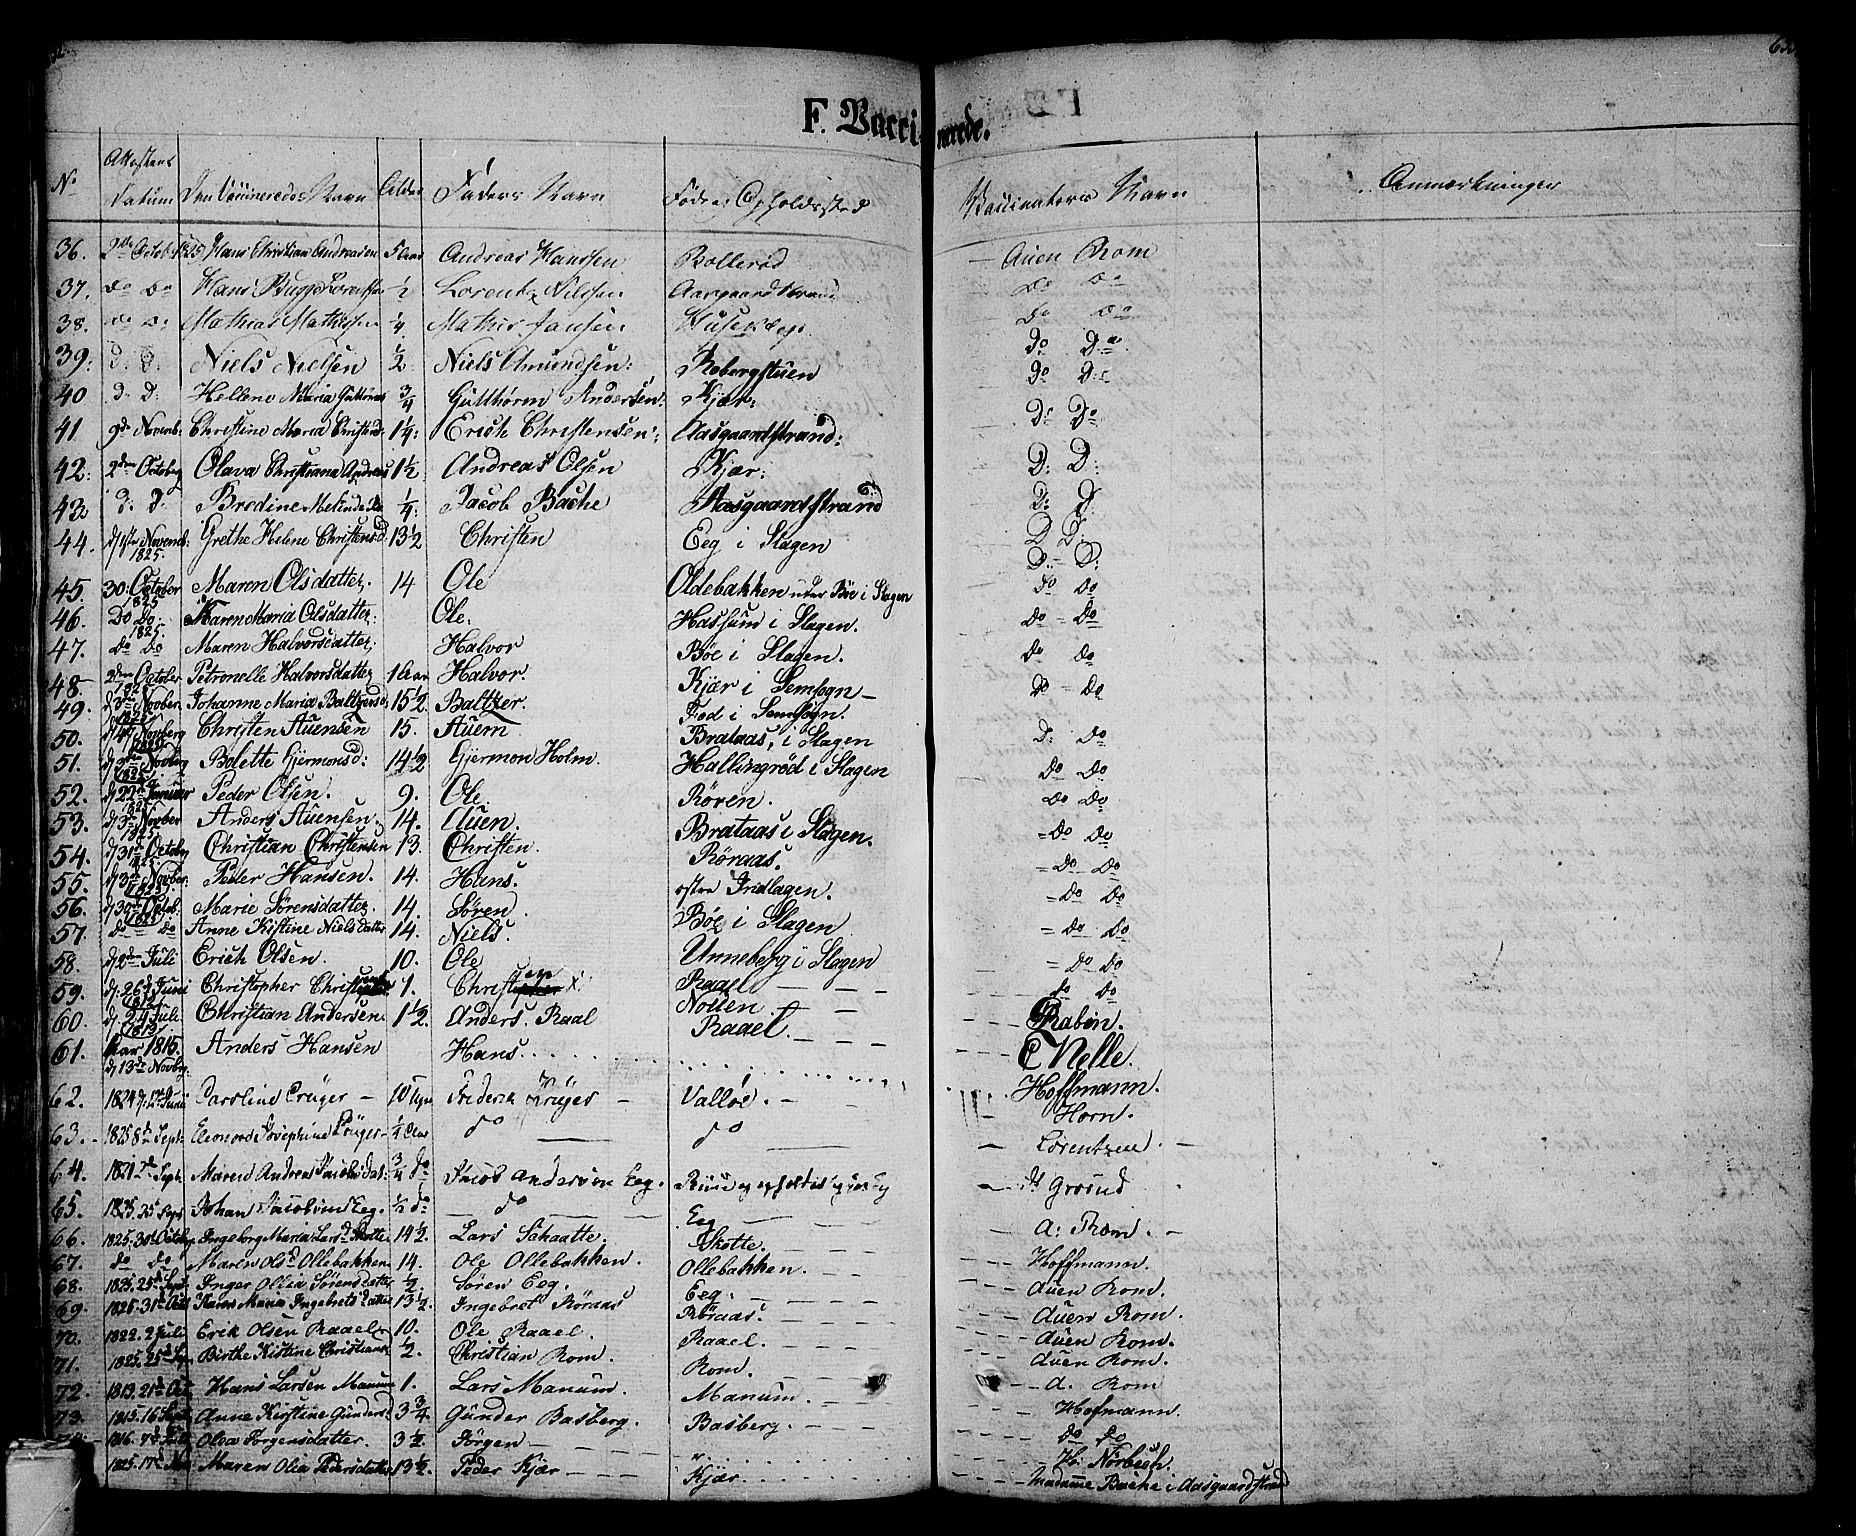 F. Vaccinerede.
No Attestens Datum Den Vaccineredes Navn Alder Faders Navn Fødes Opholdssted Vaccinateurs Navn Anmærkninger
36. 2den Octob 1825 Hans Christian Andreasen 5 Aar Andreas Hanssen Bollerød Auen Rom
37. do do Hans Bugge Lorentzen ½ Lorentz Nilssen Aasgaardstrand do do
38. do do Mathias Mathissen ¼ Mathis Jansen Husevæg Do do
39. D. D. Niels Nielsen ½ Niels Amundsen: Robergstuen Do Do
40 D. D: Hellene Maria Guttorms ¾ Gutthorm Andersen: Kjær: Do D:
41 9de Novemb: Christine Maria Christens 1¼: Erich Christensen: Aasgaardstrand: D: Do
42. 2den October Olava Christiana Andreas 1½ Andreas Olsen Kjær: D: D:
43 D. D. Bredine Melinda ¼ Jacob Bache Aasgaardstrand D: D.
44. d 1ste Novemb: 1825. Grethe Helene Christensd 13½ Christen Eeg i Slagen D D:
45. 30: October 1825 Maren Olsdatter, 14 Ole Oldebakken under Bøe i Slagen Do Do
46. Do Do. 1825. Karen Maria Olsdatter: Ole. Hassum i Slagen. Do = Do
47. do do Maren Halvorsdatter, Halvor Bøe i Slagen. Do Do
48. 2den October 1825 Petronelle Halvorsdatter 1 Aar Halvor. Kjær i Semsogn — Do = Do
49. d 3 Novber Johanne Maria Baltzersd. 15½ Baltzer. Fod i Semsogn.
50. d 4 Novberg Christen Auensen 15. Auem Brataas, i Slagen D: Do
51. d 2 Novbg 1825 Bolette Gjermonsd: 14½ Gjermon Holm. Hallingrød i Slagen Do Do
52. d 22 Januar Peder Olsen. 9. Ole Røren. Do Do.
53. d 3 Novber 1825. Anders Auensen. 14. Auen. Brataas i Slagen. = Do Do
54. d 31 Octobg Christian Christensen 13. Christen. Røraas. = Do Do
55. d 3 Novber. Peder Hansen. 14. Hans. østre Indlagen. = Do Do
56. d 30 Octob: Marie Sørensdatter. 14. Søren. Bøe i Slagen = Do Do
57. do = do Anne Kistine Nielsdatter 14. Niels. = Do Do
58. d 2den Juli Erich Olsen. 10. Ole Unneberg i Slagen = Do Do
59. d. 26 Juni Christopher Christ 1. Christ X. Raael — — — Do Do
60. d 24 Juli Christian Andersen 1½. Anders. Raal Nolten Rabén.
61. Aar 1815. d 13de Novbg. Anders Hansen Hans. Raael. — — — C Nelle.
62. 1824 d. 12 Junii Caroline Crüger — 10 Ugr Frederik Krüger — Valløe. — Hoffmann. Horn.
63. 1825 8de Sept: Eleonora Josephine Crüger ¼ Aar do do Lorentzen. —
64. 1821 de Sept. Maren Andrea Jacobsdat: ¾ do Jacob Andersen Eeg. Dr Grosind
65. 1823. 25 Sept Johan Jacobsen Eeg. ½ do do Eeg — — — A: Rom. —
66. 1825. 30 Octbg Ingeborg Maria Larsd Skotte 14½. Lars Schaatte. Skotte. — — Hoffmann.
67. do do Maren Olsd Ollebakken 14. Ole Ollebakken. Ollebakken. — — Auen Rom.
68. 1825. 25 Sept Inger Olea Sørensdatter ½ Søren Eeg. Eeg. — — Auen Rom.
69. 1825. 31 Oct Karen Maria Ingebretsdatter 13½. Ingebret Røraas Røraas. — Auen Rom.
70. 1822. 2 Juli Erik Olsen Raael 10. Ole Raael. Raael. — — — Auen Rom.
71. 1825. 25 Sep. Birthe Kistine Christians ½. Christian Rom. Rom. — — A. Rom
72. 1813. 21 Oct Hans Larsen Manum 1. Lars Manum. Manum — — — Hofmann.
73. 1815. 16 Sept. Anne Kirstine Gunders 3¾. Gunder Basberg. Basberg. — — Do Do
1816. 7 Olea Jorgensdatter. 3½. Jörgen — — — H: Nörbech.
1825. 17 Maren Olea Pedersdatter 13½. Peder Kjær — — Kjær. Madamme Bache i Aasgaardstrand